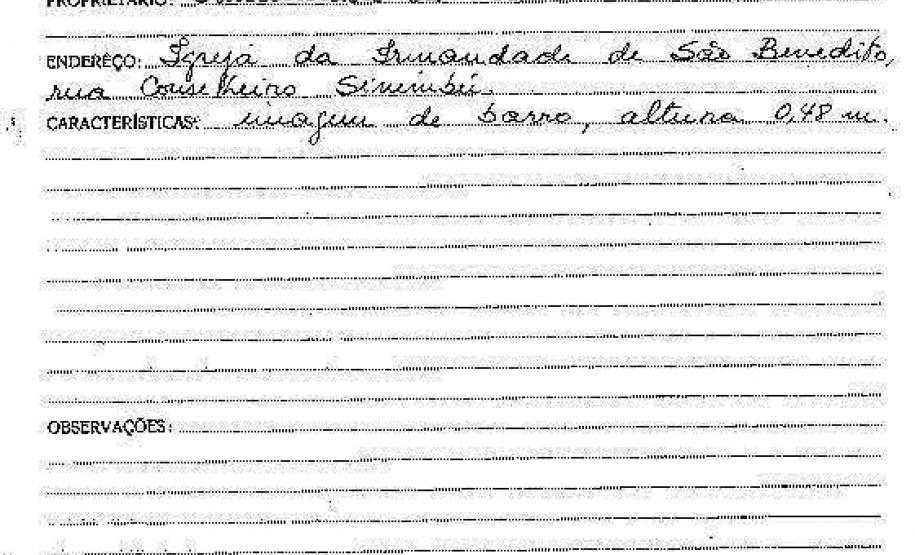 PROPRIETÁRIO:
ENDERÊÇO: Igreja da Irmandade de São Benedito,
rua Conselheiro Sinimbú.
CARACTERÍSTICAS: imagem de barro, altura 0,48 m.
OBSERVAÇÕES: